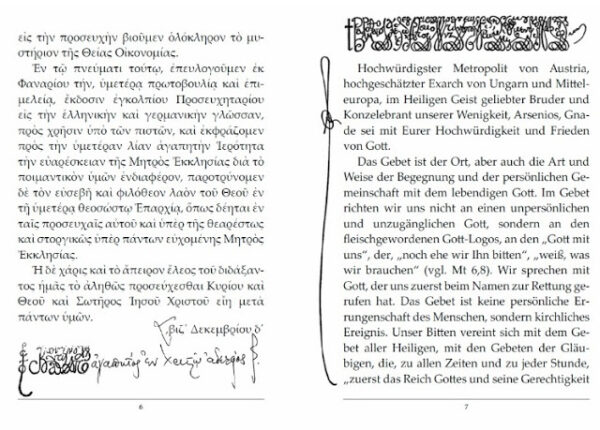 εἰς τὴν προσευχὴν βιοῦμεν ὁλόκληρον τὸ μυ-
στήριον τῆς Θείας Οἰκονομίας.
Ἐν τῷ πνεύματι τούτῳ, ἐπευλογοῦμεν ἐκ
Φαναρίου τήν, ὑμετέρᾳ πρωτοβουλίᾳ καὶ ἐπι-
μελείᾳ, ἔκδοσιν ἐγκολπίου Προσευχηταρίου
εἰς τὴν ἑλληνικὴν καὶ γερμανικὴν γλῶσσαν,
πρὸς χρῆσιν ὑπὸ τῶν πιστῶν, καὶ ἐκφράζομεν
πρὸς τὴν ὑμετέραν λίαν ἀγαπητὴν Ἱερότητα
τὴν εὐαρέσκειαν τῆς Μητρὸς Ἐκκλησίας διὰ τὸ
ποιμαντικὸν ὑμῶν ἐνδιαφέρον, παροτρύνομεν
δὲ τὸν εὐσεβῆ καὶ φιλόθεον λαὸν τοῦ Θεοῦ ἐν
τῇ ὑμετέρᾳ θεοσώστῳ Ἐπαρχίᾳ, ὅπως δέηται ἐν
ταῖς προσευχαῖς αὐτοῦ καὶ ὑπὲρ τῆς θεαρέστως
καὶ στοργικῶς ὑπὲρ πάντων εὐχομένης Μητρὸς
Ἐκκλησίας.
Ἡ δὲ χάρις καὶ τὸ ἄπειρον ἔλεος τοῦ διδάξαν-
τος ἡμᾶς τὸ ἀληθῶς προσεύχεσθαι Κυρίου καὶ
Θεοῦ καὶ Σωτῆρος Ἰησοῦ Χριστοῦ εἴη μετὰ
πάντων ὑμῶν.
͵βιζ´ Δεκεμβρίου δ´
ἀγαπητὸς ἐν Χριστῷ ἀδελφός
6
Hochwürdigster Metropolit von Austria,
hochgeschätzter Exarch von Ungarn und Mittel-
europa, im Heiligen Geist geliebter Bruder und
Konzelebrant unserer Wenigkeit, Arsenios, Gna-
de sei mit Eurer Hochwürdigkeit und Frieden
von Gott.
Das Gebet ist der Ort, aber auch die Art und
Weise der Begegnung und der persönlichen Ge-
meinschaft mit dem lebendigen Gott. Im Gebet
richten wir uns nicht an einen unpersönlichen
und unzugänglichen Gott, sondern an den
fleischgewordenen Gott-Logos, an den „Gott mit
uns“, der, „noch ehe wir Ihn bitten“, „weiß, was
wir brauchen“ (vgl. Mt 6,8). Wir sprechen mit
Gott, der uns zuerst beim Namen zur Rettung ge-
rufen hat. Das Gebet ist keine persönliche Er-
rungenschaft des Menschen, sondern kirchliches
Ereignis. Unser Bitten vereint sich mit dem Ge-
bet aller Heiligen, mit den Gebeten der Gläu-
bigen, die, zu allen Zeiten und zu jeder Stunde,
„zuerst das Reich Gottes und seine Gerechtigkeit
7